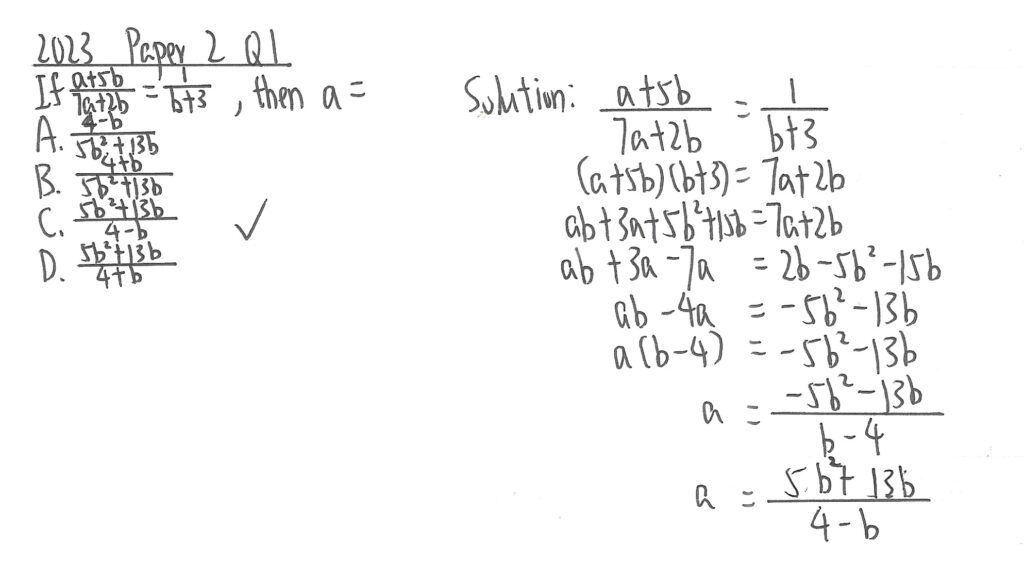 2023 Paper 2 Q1
If (a+5b)/(7a+2b) = 1/(b+3), then a =
A. (4-b)/(5b²+13b)
B. (4+b)/(5b²+13b)
C. (5b²+13b)/(4-b) ✓
D. (5b²+13b)/(4+b)
Solution: (a+5b)/(7a+2b) = 1/(b+3)
(a+5b)(b+3) = 7a+2b
ab+3a+5b²+15b = 7a+2b
ab+3a-7a = 2b-5b²-15b
ab-4a = -5b²-13b
a(b-4) = -5b²-13b
a = (-5b²-13b)/(b-4)
a = (5b²+13b)/(4-b)